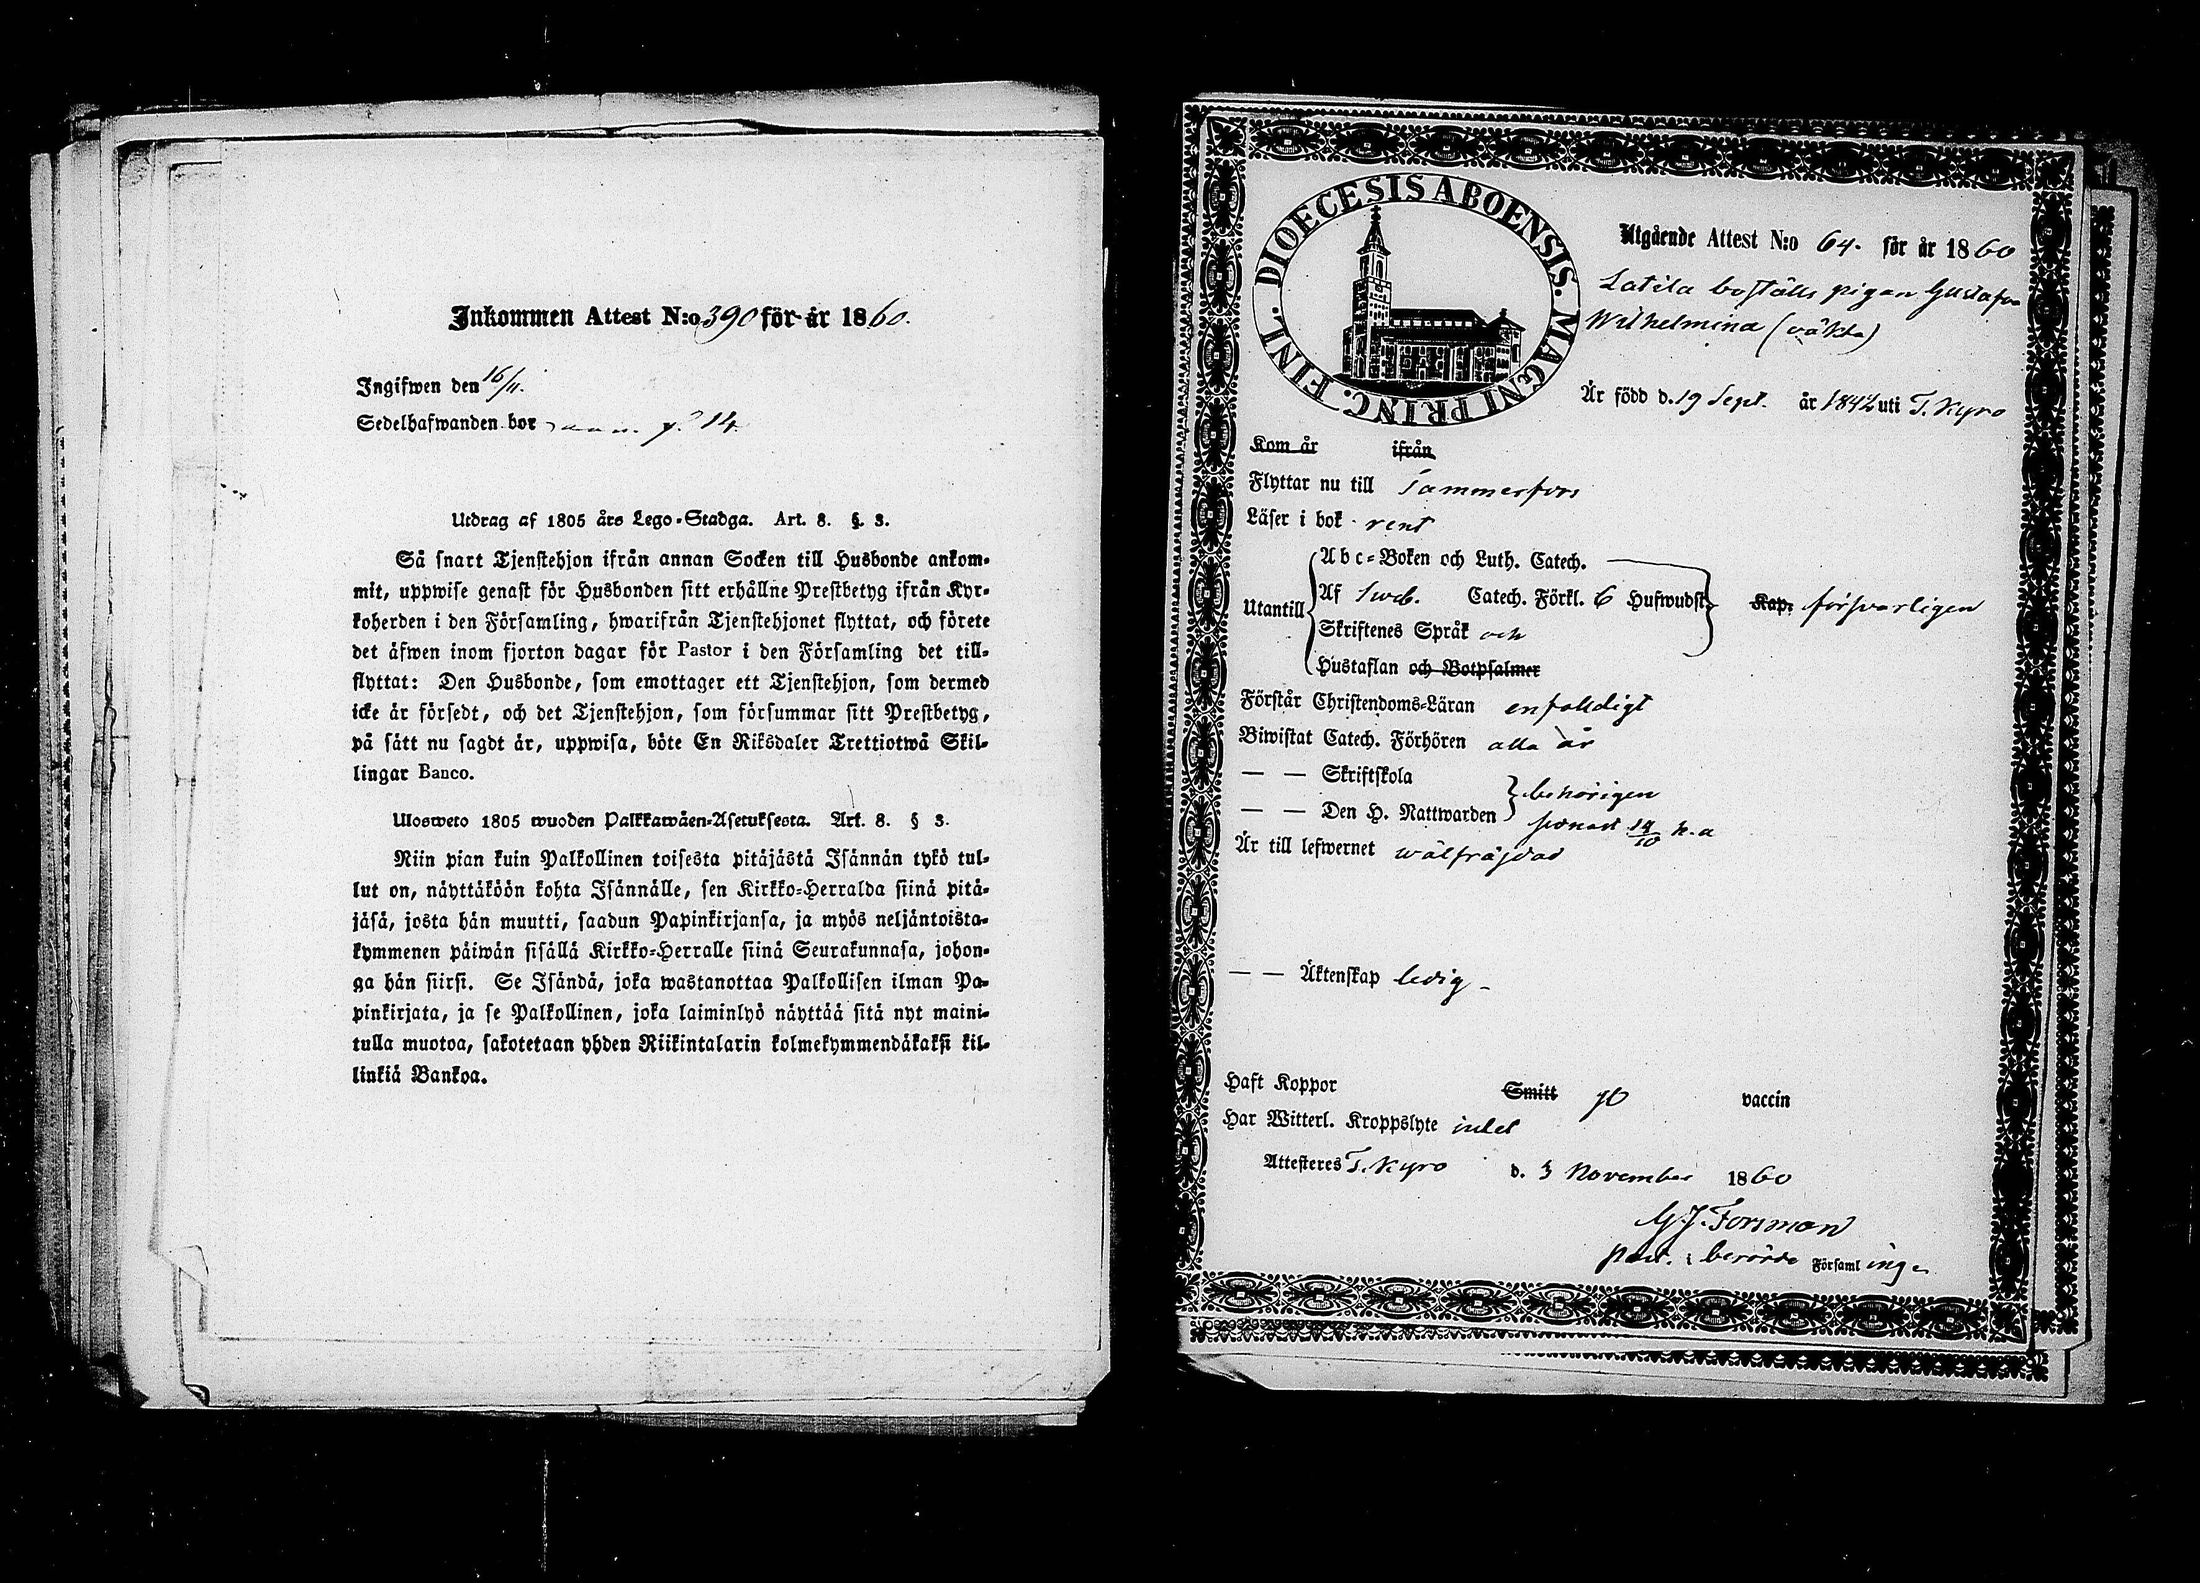 Inkommen Attest N:o 390 för år 1860.
Ingifwen den 16/11.
Sedelhafwanden bor
14
Utdrag af 1805 års Lego-Stadga. Art. 8. §. 3.
Så snart Tjenstehjon ifrån annan Socken till Husbonde ankom-
mit, uppwise genast för Husbonden sitt erhållne Prestbetyg ifrån Kyr-
koherden i den Församling, hwarifrån Tjenstehjonet flyttat, och förete
det äfwen inom fjorton dagar för Pastor i den Församling det till-
flyttat: Den Husbonde, som emottager ett Tjenstehjon, som dermed
icke är försedt, och det Tjenstehjon, som försummar sitt Prestbetyg,
på sätt nu sagdt är, uppwisa, böte En Riksdaler Trettiotwå Skil-
lingar Banco.
Ulosweto 1805 wuoden Palkkawäen-Asetuksesta. Art. 8. § 3.
Niin pian kuin Palkollinen toisesta pitäjästä Isännän tykö tul-
lut on, näyttäköön kohta Isännälle, sen Kirkko-Herralda siinä pitä-
jäsä, josta hän muutti, saadun Papinkirjansa, ja myös neljäntoista-
kymmenen päiwän sisällä Kirkko-Herralle siinä Seurakunnasa, johon-
ga hän siirsi. Se Isändä, joka wastanottaa Palkollisen ilman Pa-
pinkirjata, ja se Palkollinen, joka laiminlyö näyttää sitä nyt maini-
tulla muotoa, sakotetaan yhden Riikintalarin kolmekymmendäkaksi kil-
linkiä Bankoa.
DIOECESIS ABOENSIS. MAGNI PRINC. FINL.
Utgående Attest N:o 64. för år 1860
Latila boställs pigan Gustafva
Wilhelmina (oäkta)
Är född d. 19 Sept. år 1842 uti T. Kyro
Kom år ifrån
Flyttar nu till Tammerfors
Läser i bok rent
Utantill
Abc-Boken och Luth. Catech.
Af Sveb. Catech. Förkl. 6 Hufwudst. Kap. försvarligen
Skriftenes Språk och
Hustaflan och Botpsalmer
Förstår Christendoms-Läran enfaldigt
Biwistat Catech. Förhören alla år
— — Skriftskola
behörigen
— — Den H. Nattwarden
senast 14/10 h. a
Är till lefwernet wälfräjdad
— — Äktenskap ledig
Haft Koppor Smitt vaccin
Har Witterl. Kroppslyte intet
Attesteres T. Kyro d. 3 November 1860
G J Forsman
Past. i berörde Församlinge